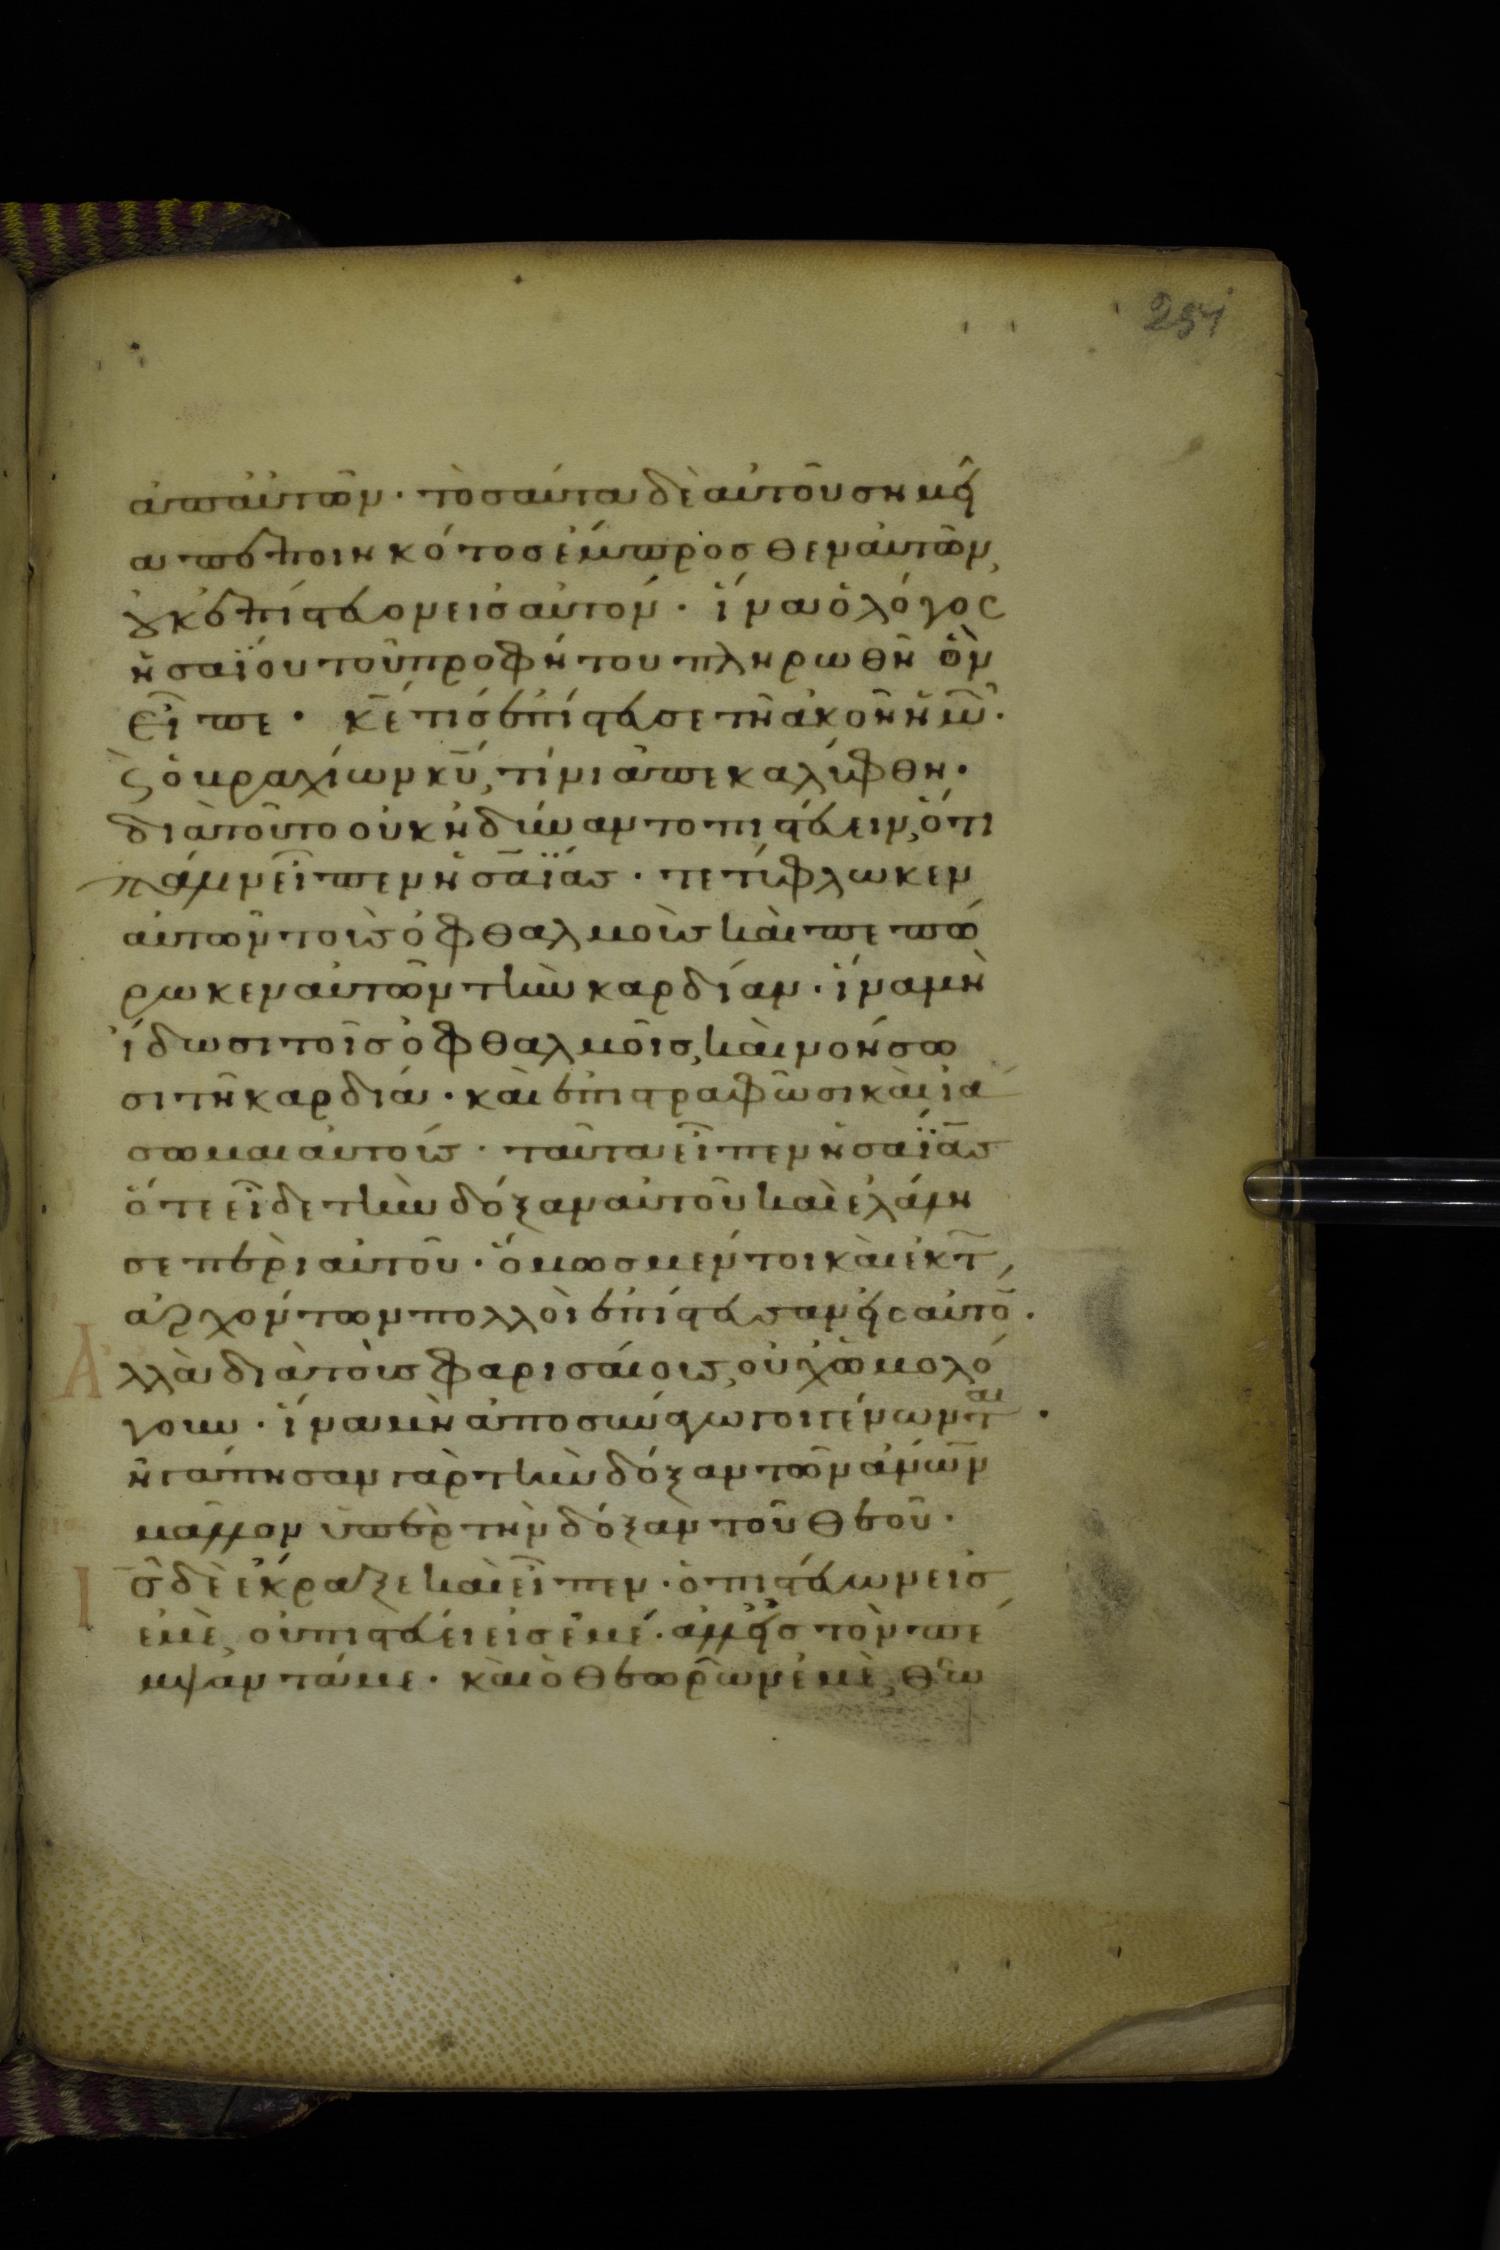 251
ἀπ' αὐτῶν· τοσαῦτα δὲ αὐτοῦ σημεῖ
α πεποιηκότος ἔμπροσθεν αὐτῶν,
οὐκ ἐπίστευον εἰς αὐτόν· ἵνα ὁ λόγος
ἠσαΐου τοῦ προφήτου πληρωθῆ ὃν
εἶπε· κε τίς ἐπίστευσε τῆ ἀκοῆ ἡμῶν·
καὶ ὁ βραχίων κυ, τίνι ἀπεκαλύφθη·
διὰ τοῦτο οὐκ ἠδύναντο πιστεύειν, ὅτι
πάλιν εἶπεν ἠσαΐας· τετύφλωκεν
αὐτῶν τοὺς ὀφθαλμοὺς καὶ πεπώ
ρωκεν αὐτῶν τὴν καρδίαν· ἵνα μὴ
ἴδωσι τοῖς ὀφθαλμοῖς, καὶ νοήσω
σι τῆ καρδία· καὶ ἐπιστραφῶσι καὶ ἰά
σωμαι αὐτούς· ταῦτα εἶπεν ἠσαΐας
ὅτε εἶδε τὴν δόξαν αὐτοῦ καὶ ἐλάλη
σε περὶ αὐτοῦ· ὅμως μέντοι καὶ ἐκ τ
ἀρχόντων πολλοὶ ἐπίστευσαν εἰς αὐτό·
Ἀλλὰ διὰ τοὺς φαρισαίους, οὐχ ὡμολό
γουν· ἵνα μὴ ἀποσυνάγωγοι γένωνται·
ἠγάπησαν γὰρ τὴν δόξαν τῶν ἀνῶν
μᾶλλον ὑπὲρ τὴν δόξαν τοῦ θεοῦ·
Ις δὲ ἔκραξε καὶ εἶπεν· ὁ πιστεύων εἰς
ἐμὲ, οὐ πιστεύει εἰς ἐμέ· ἀλλ' εἰς τὸν πέ
μψαντά με· καὶ ὁ θεωρῶν ἐμὲ, θεω